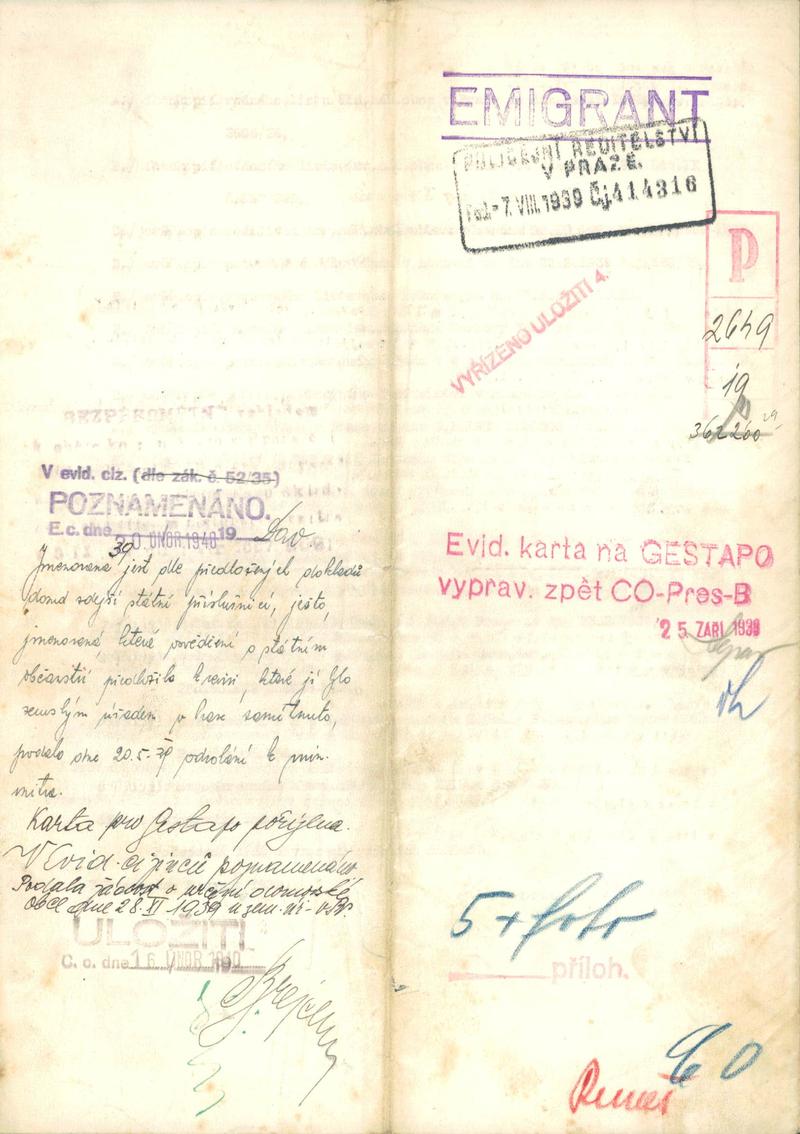 V evid. ciz. (dle zák. č. 52/35)
POZNAMENÁNO.
E. c. dne 20. ÚNOR. 1940 19
39
Jmenovaná jest dle předložených dokladů
dosud zdejší státní příslušnicí, ješto
jmenovaná, které osvědčení o státním
občanství předložila k revisi, které jí byla
zemským úřadem v Praze zamítnuto,
podala dne 20.5.39 odvolání k min.
vnitra.
Karta pro Gestapo pořízena.
V Evid. cizinců poznamenáno
Podala žádost o určení domovské
obce dne 28.VI 1939 u zem. úř.
ULOŽITI
C. o. dne 16. ÚNOR 1940
EMIGRANT
POLICEJNÍ ŘEDITELSTVÍ
V PRAZE.
Pod.- 7. VIII. 1939 Čj. 414316
P
VYŘÍZENO ULOŽITI 4.
2649
19
362200
Evid. karta na GESTAPO
vyprav. zpět CO-Pres-B
25. ZÁŘÍ 1939
5 + foto
příloh.